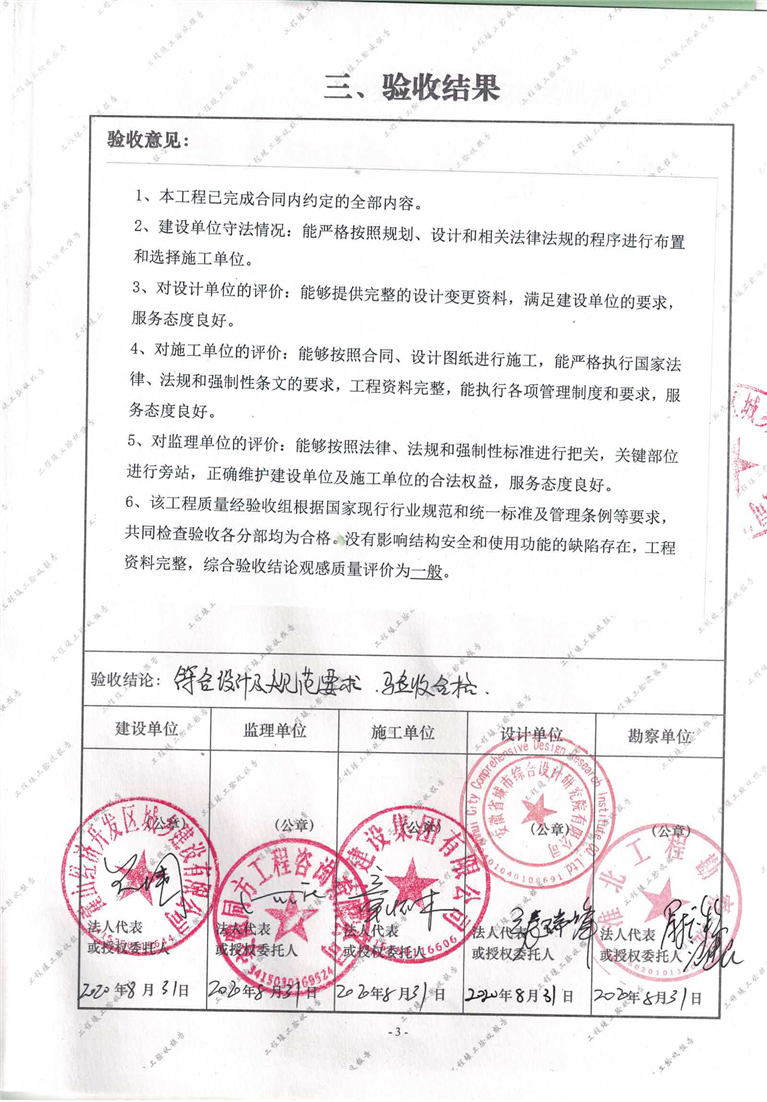 三、验收结果
验收意见：
1、本工程已完成合同内约定的全部内容。
2、建设单位守法情况：能严格按照规划、设计和相关法律法规的程序进行布置
和选择施工单位。
3、对设计单位的评价：能够提供完整的设计变更资料，满足建设单位的要求，
服务态度良好。
4、对施工单位的评价：能够按照合同、设计图纸进行施工，能严格执行国家法
律、法规和强制性条文的要求，工程资料完整，能执行各项管理制度和要求，服
务态度良好。
5、对监理单位的评价：能够按照法律、法规和强制性标准进行把关，关键部位
进行旁站，正确维护建设单位及施工单位的合法权益，服务态度良好。
6、该工程质量经验收组根据国家现行行业规范和统一标准及管理条例等要求，
共同检查验收各分部均为合格。没有影响结构安全和使用功能的缺陷存在，工程
资料完整，综合验收结论观感质量评价为一般。
验收结论：符合设计及规范要求、验收合格.
建设单位 监理单位 施工单位 设计单位 勘察单位
(公章) (公章) (公章) (公章) (公章)
安徽省城市综合设计研究院有限公司
City Comprehensive Design Research Institute Co.,Ltd
工程咨询
建设集团有限公司
3415030169524
法人代表 法人代表 法人代表 法人代表 法人代表
或授权委托人 或授权委托人 或授权委托人 或授权委托人 或授权委托人
2020年8月31日 2020年8月31日 2020年8月31日 2020年8月31日 2020年8月31日
- 3 -
工程竣工验收报告